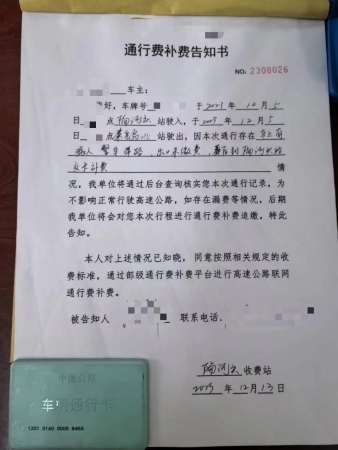 通行费补费告知书
NO: 2308026
车主：
您好，车牌号 于2023年12月5
日 点 站驶入，于2023年12月5
日 点 站驶出，因本次通行存在车上有
病人 警车带路，出口未缴费，
情
况，我单位将通过后台查询核实您本次通行记录，为
不影响正常行驶高速公路，如存在漏费等情况，后期
我单位将会对您本次行程进行通行费补费追缴，特此
告知。
本人对上述情况已知晓，同意按照相关规定的收
费标准，通过部级通行费补费平台进行高速公路联网
通行费补费。
被告知人 联系电话：
收费站
2023 年 12 月 13 日
中国公路
车辆通行卡
1201 0140 0005 8455